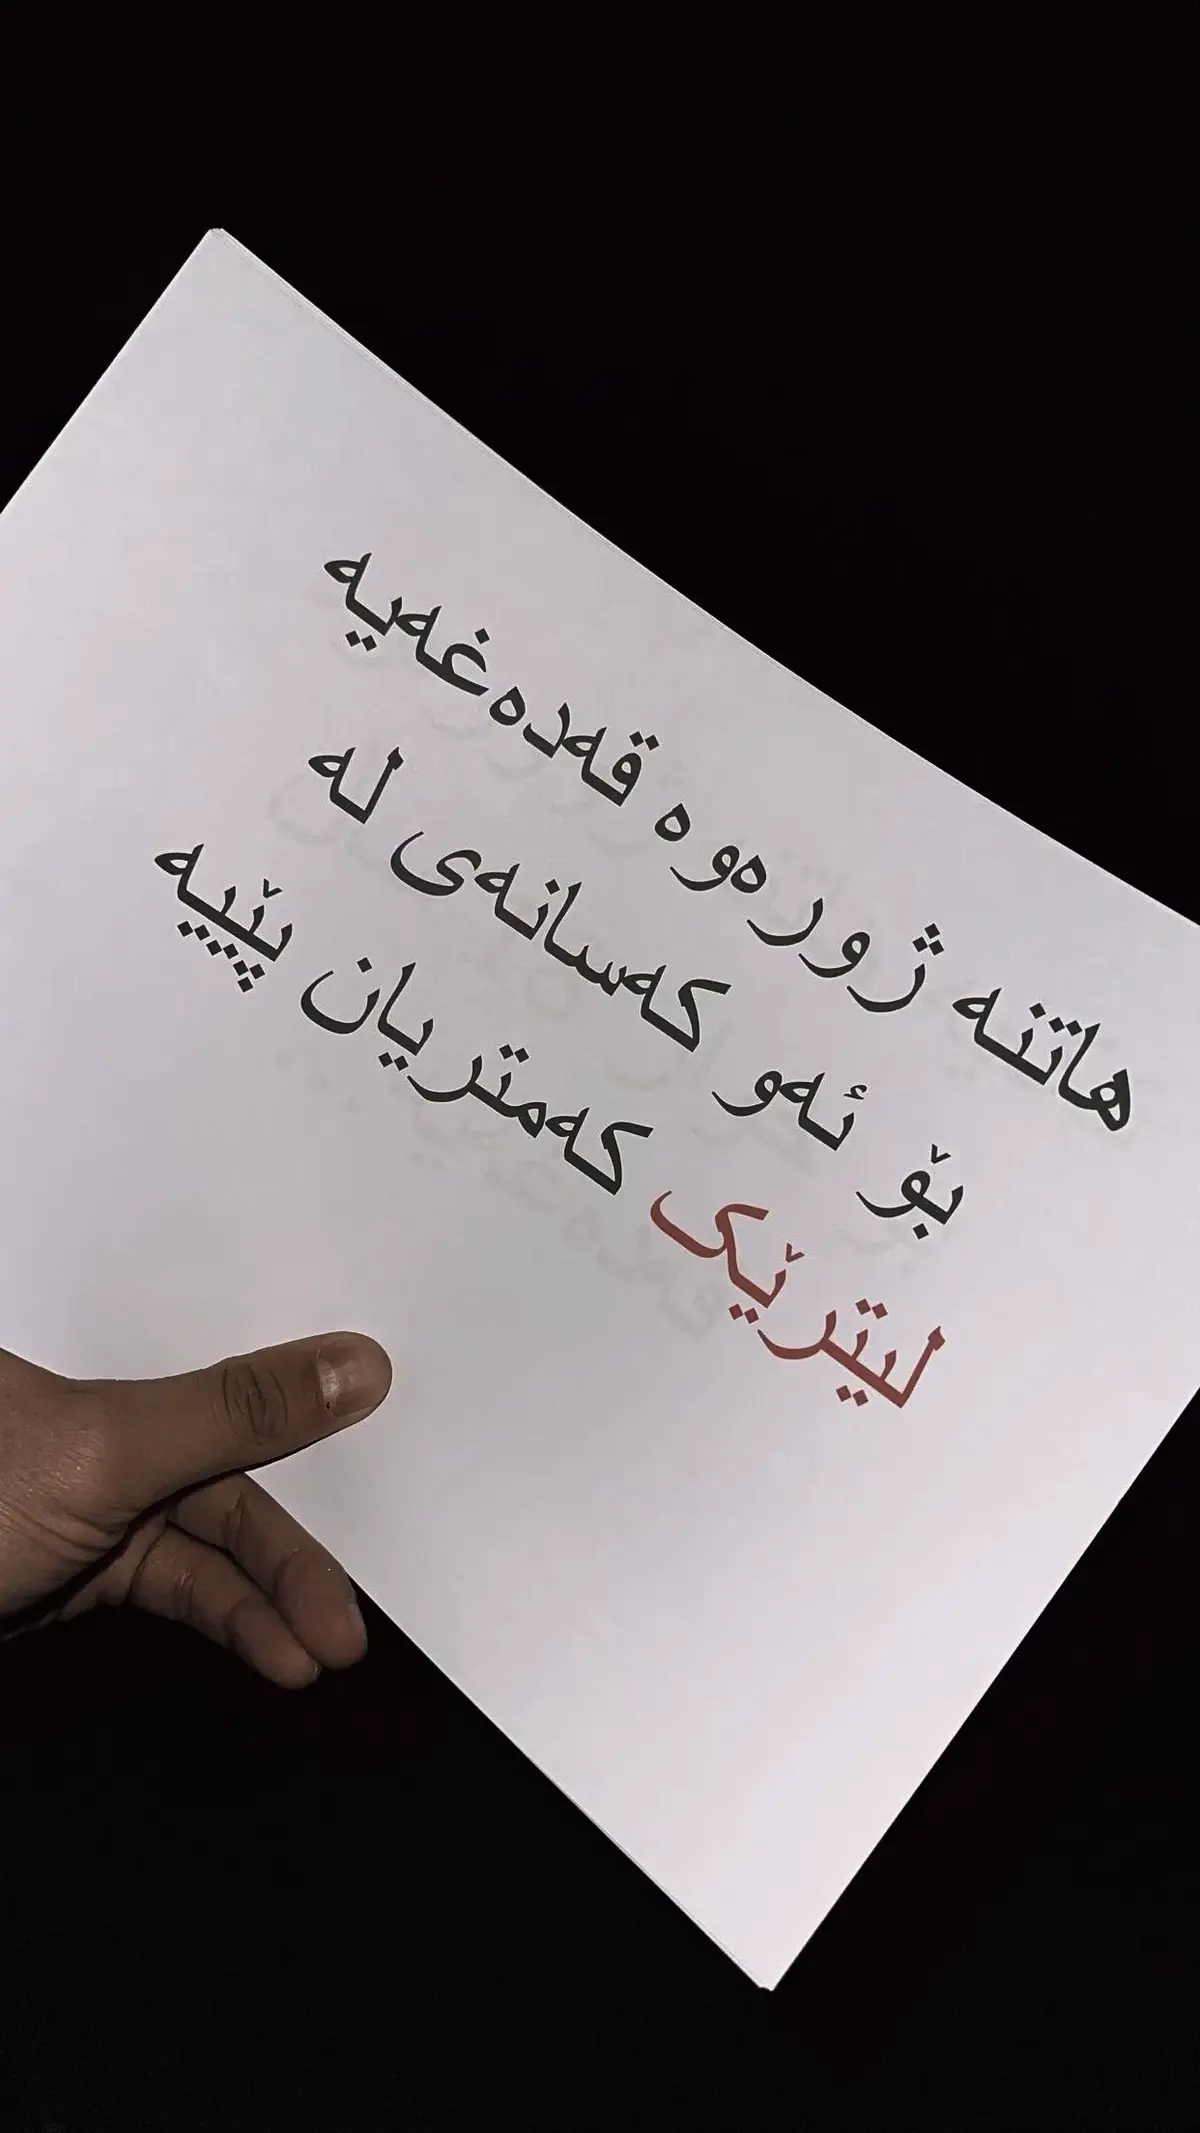 هاتنە ژورەوە قەدەغەیە
بۆ ئەو کەسانەی لە
لیترێک کەمتریان پێیە